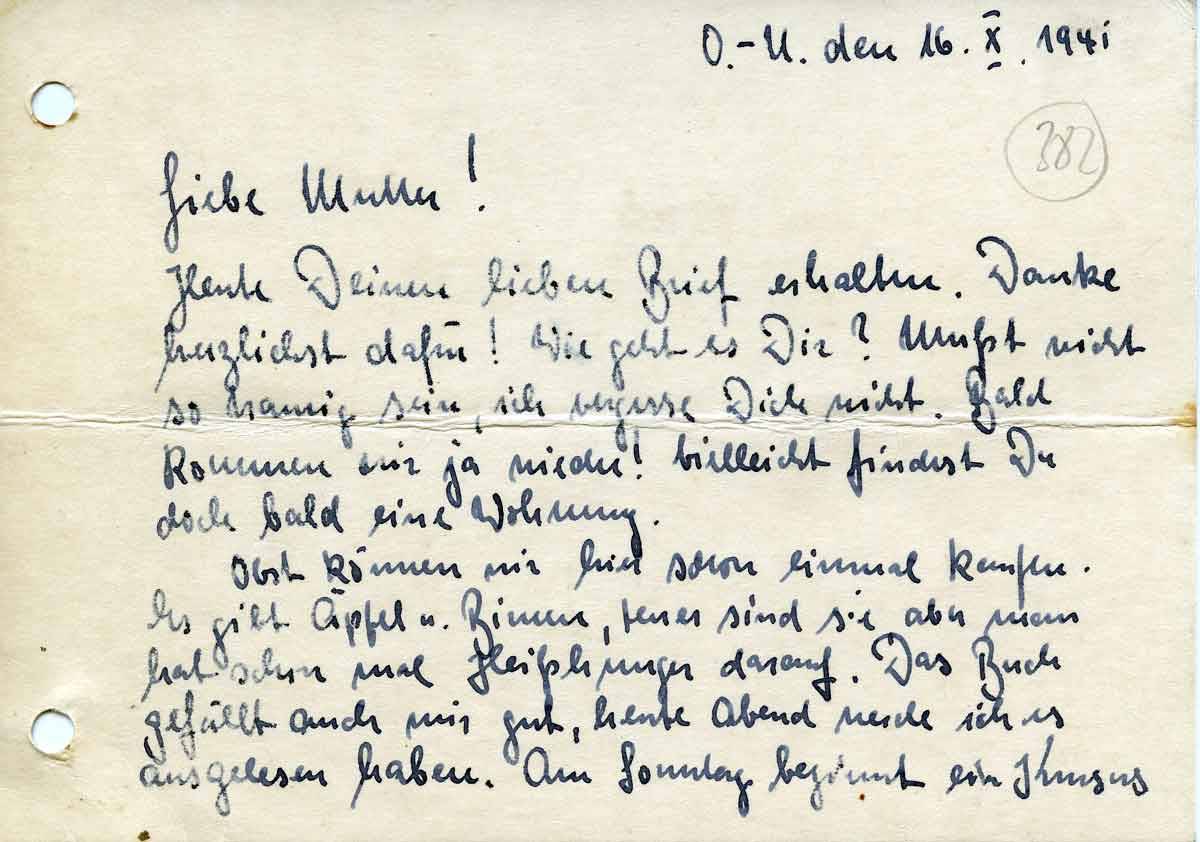 O.-U. den 16. X. 1941
382
Liebe Mutter!
Heute Deinen lieben Brief erhalten. Danke
herzlichst dafür! Wie geht es Dir? Mußt nicht
so traurig sein, ich vergesse Dich nicht. Bald
kommen wir ja wieder! Vielleicht findest Du
doch bald eine Wohnung.
Obst können wir hier schon einmal kaufen.
Es gibt Äpfel u. Birnen, teuer sind sie aber man
hat schon mal Heißhunger darauf. Das Buch
gefällt auch mir gut, heute Abend werde ich es
ausgelesen haben. Am Sonntag beginnt ein Kursus